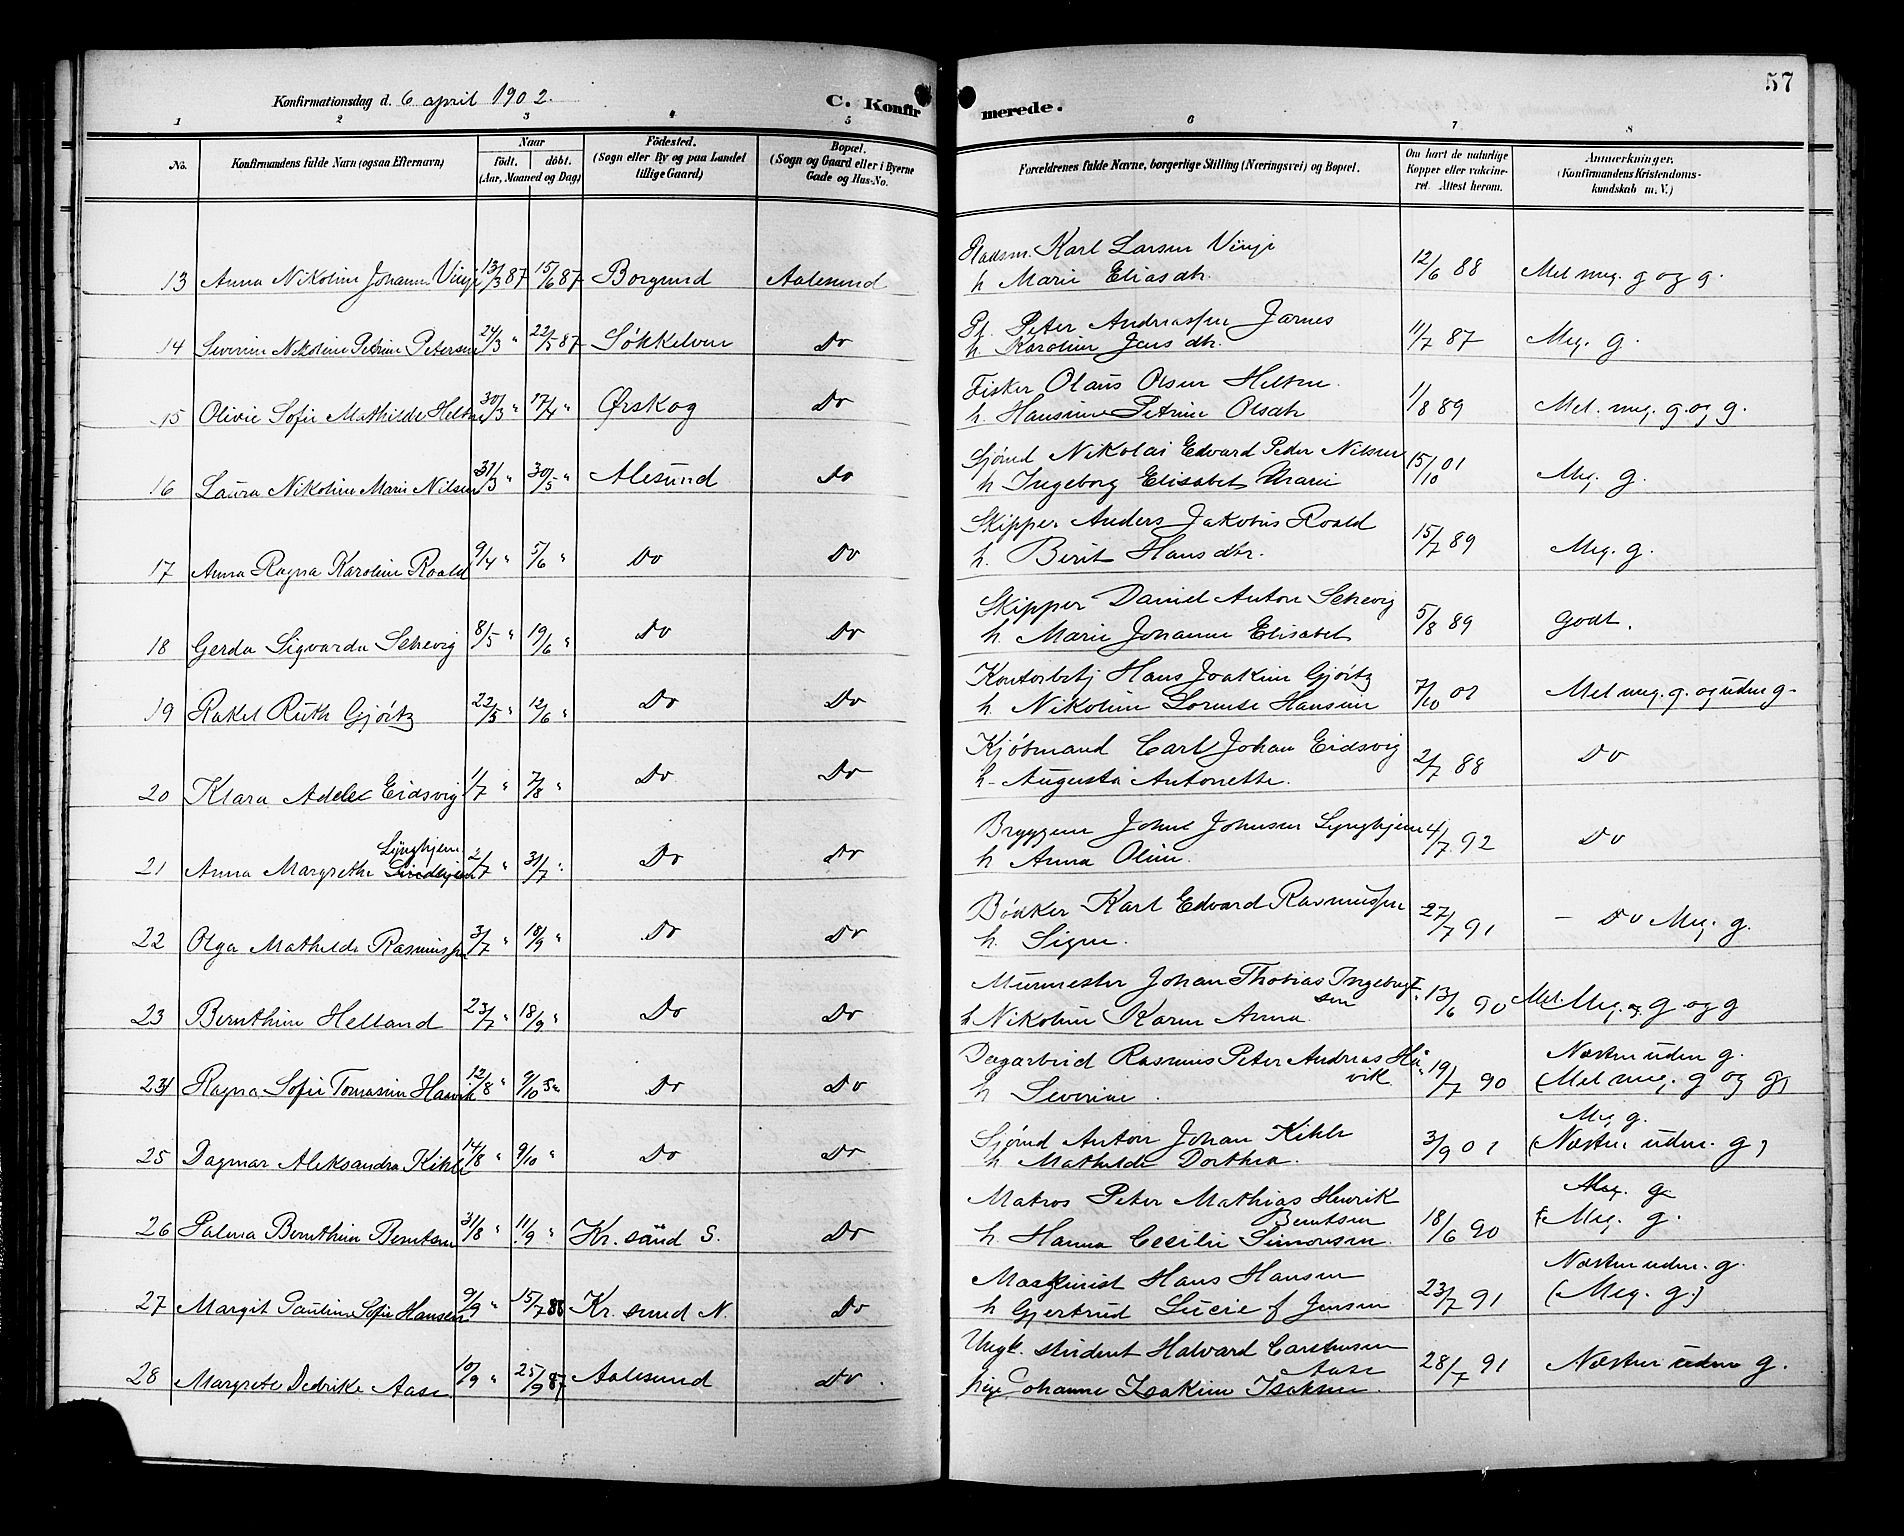 57
Konfirmationsdag d. 6 april 1902.
C. Konfirmerede.
1 2 3 4 5 6 7 8
No. Konfirmandens fulde Navn (ogsaa Efternavn) Naar født. døbt. (Aar, Maaned og Dag) Fødested. (Sogn eller By og paa Landet tillige Gaard) Bopæl. (Sogn og Gaard eller i Byerne Gade og Hus-No. Forældrenes fulde Navne, borgerlige Stilling (Næringsvei) og Bopæl. Om havt de naturlige Kopper eller vakcineret. Attest herom. Anmærkninger. (Konfirmandens Kristendomskundskab m. V.)
13 Anna Nikoline Johanne Vinje 13/3 87 15/6 87 Borgund Aalesund Karl Larsen Vinje h Marie Eliasdtr. 12/6 88 Mel meg. g og g.
14 Severine Nikoline Petrine Petersen 24/3 " 22/5 87 Søkkelven Do Peter Andreassen Jarnes h. Karoline Jensdtr. 11/7 87 Meg. g.
15 Olivie Sofie Mathilde Heltne 30/3 " 17/4 " Ørskog Do Fisker Olaus Olsen Heltne. h. Hansine Petrine Olsdtr 1/8 89 Mel. meg. g. og g.
16 Laura Nikoline Marie Nilsen 31/3 " 30/5 " Alesund Do Sjømd Nikolai Edvard Peder Nilsen h Ingeborg Elisabet Marie 15/10 01 Meg. g.
17 Anna Ragna Karoline Roald 9/4 " 5/6 " Do Do Skipper Anders Jakobus Roald h. Berit Hansdtr. 15/7 89 Meg. g.
18 Gerda Sigvarda Schevig 8/5 " 19/6 " Do Do Skipper Daniel Anton Schevig h. Marie Johanne Elisabet 5/8 89 godt.
19 Rakel Ruth Gjørtz 22/5 " 12/6 " Do Do Kontorbetj Hans Joakim Gjørtz h. Nikoline Lorense Hansine 7/10 01 Mel meg. g. og uden g-
20 Klara Adele Eidsvig 1/7 " 7/8 " Do Do Kjøbmand Carl Johan Eidsvig h- Augusta Antonette. 2/7 88 Do
21 Anna Margrethe Lynghjem 2/7 " 31/7 " Do Do Johnsen Lynghjem h Anna Oline. 4/7 92 Do
22 Olga Mathilde Rasmussen 3/7 " 18/9 " Do Do Bødker Karl Edvard Rasmussen h. Signe. 27/7 91 - Do Meg. g.
23 Bernthine Helland 23/7 " 18/9 " Do Do Murmester Johan Thobias Ingebrigtsen h Nikoline Karen Anna. 13/6 90 Mel. Meg. g og g
24 Ragna Sofie Tomasine Haavik 12/8 " 9/10 Do Do Dagarbeid Rasmus Peter Andreas Håvik h Severine. 19/7 90 Næsten uden g. (Mel meg. g og g)
25 Dagmar Aleksandra Kihle 14/8 " 9/10 " Do Do Sjømd Anton Johan Kihle h Mathilde Dorthea. 3/9 01 Meg g. (Næsten uden. g)
26 Palma Bernthine Berntsen 31/8 " 11/9 " Kr. sand S. Do Matros Peter Mathias Henrik Berntsen h. Hanna Cecilie Simonsen. 18/6 90 Meg. g. Meg. g.
27 Margit Pauline Sofie Hansen 9/9 " 15/7 88 Kr. sund N. Do Maskinist Hans Hansen h Gjertrud Lucie f Jensen 23/7 91 Næsten uden. g. (Meg. g.)
28 Margrete Dedrike Aase 10/9 " 25/9 87 Aalesund Do. Ungk. student Halvard Carstensen Aase Pige Johanne Isakine Isaksen. 28/7 91 Næsten uden g.